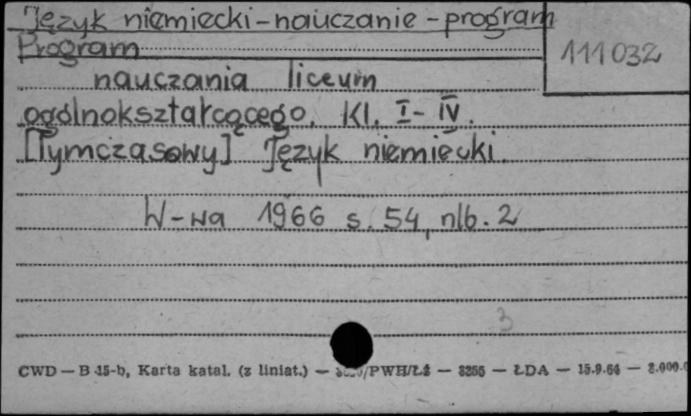 Język niemiecki - nauczanie - program
111032
Program
nauczania liceum
ogólnokształcącego. Kl. I - IV.
[Tymczasowy] Język niemiecki.
W-wa 1966 s. 54, nlb. 2
3
CWD — B 15-b, Karta katal. (z liniat.) — /PWH/Łź — 8255 — ŁDA — 15.9.64 —